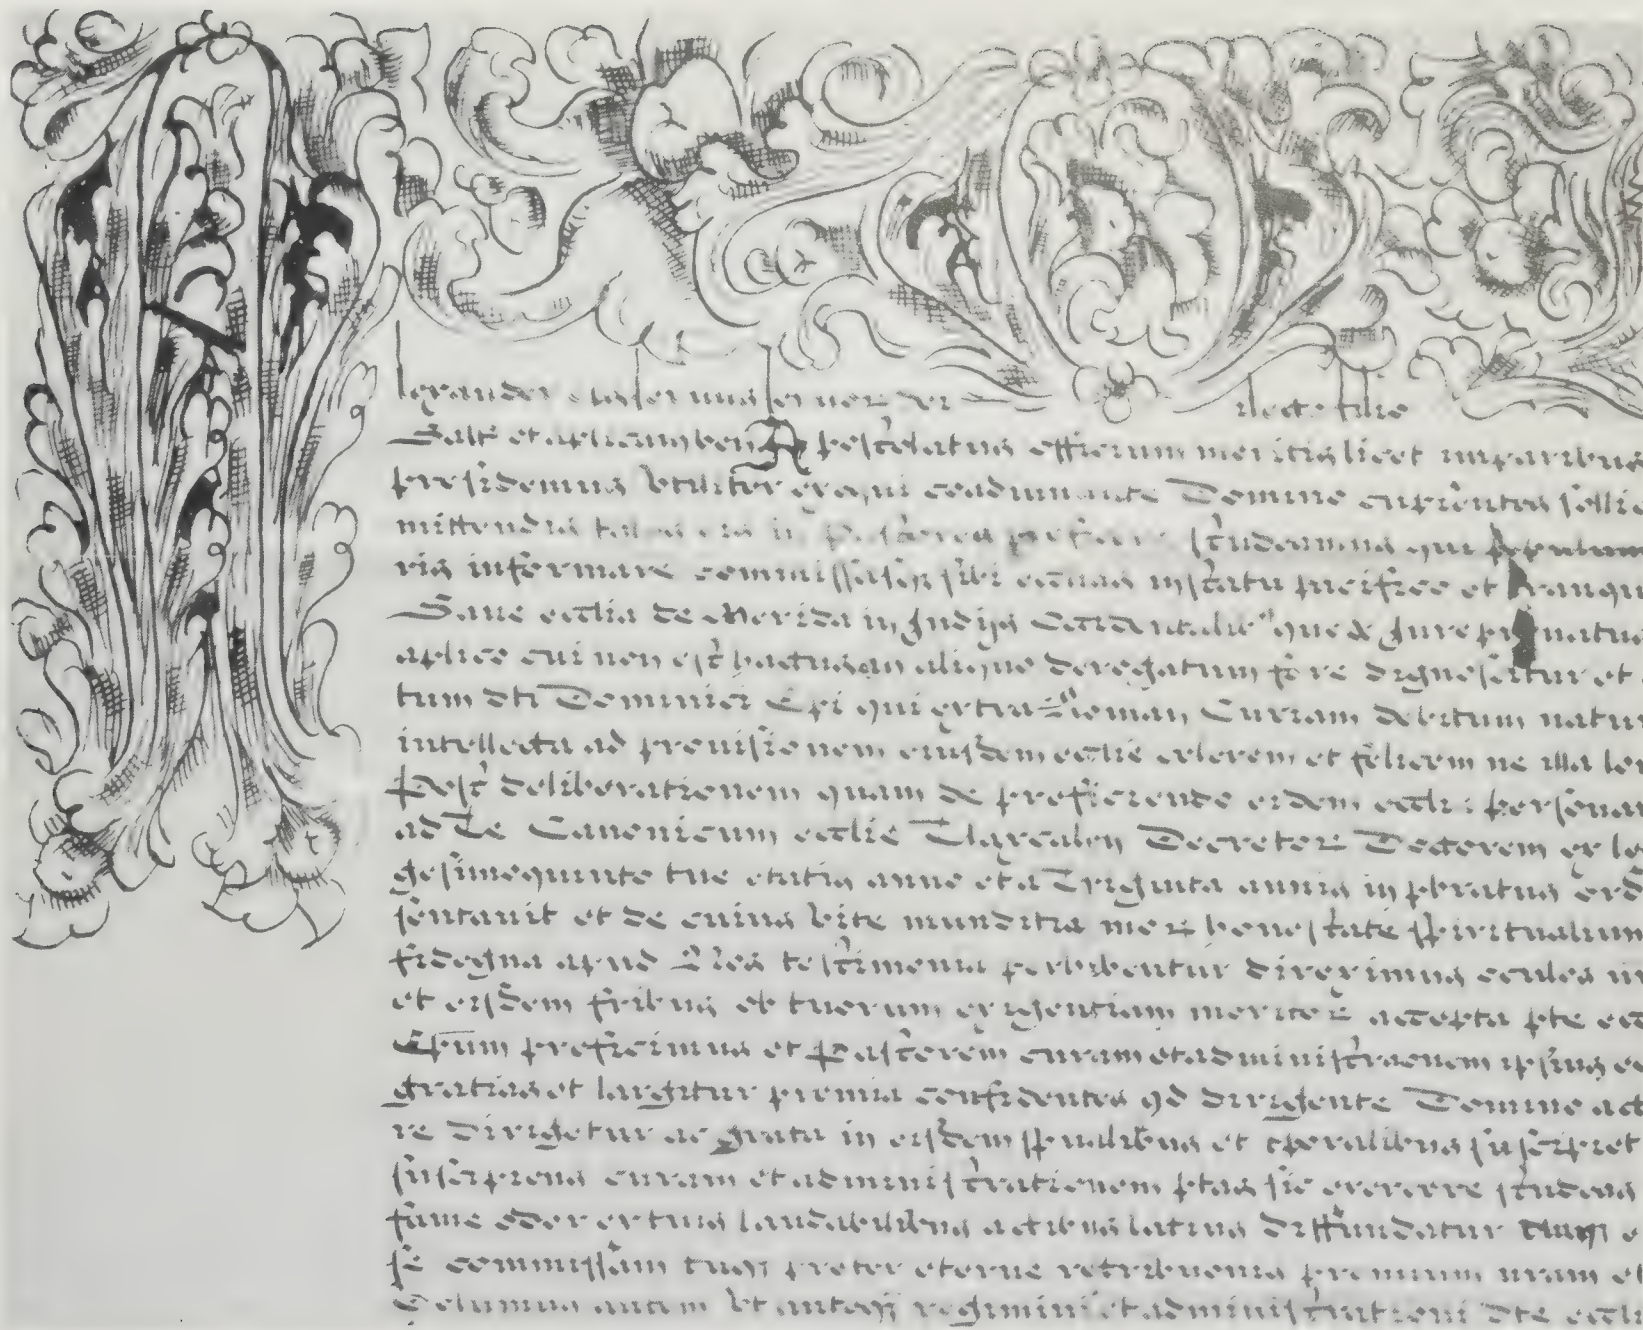 lexander
dilecto filio
Salt et aplicam ben Apostolatus officium meritis licet imparibus
presidemus vtiliter exequi coadiuuante Domino cupientes sollic
mittendis in Pastores preficere studeamus qui populum
ris informare commissas sibi ecclias in statu pacifico et tranqu
Sane ecclia de Merida in Indijs Occidentalibus que de Jure pronatus
aplico cui non est hactenus in aliquo derogatum fore dignoscitur et
tum dti Dominici Epi qui extra Romanam Curiam debitum natur
intellecta ad prouisionem eiusdem ecclie celerem et felicem ne illa lon
Post deliberationem quam de preficiendo eidem ecclie personam
ad Te Canonicum ecclie Tlaxcalen Decretor Doctorem ex le
gesimoquinto tue etatis anno et a Triginta annis in pbratus ord
sentauit et de cuius vite munditia mor honestate spiritualium
fidegna apud Nos testimonia perhibentur direximus oculos
et eisdem fribus ob tuorum exigentiam meritor accepta pte ecc
Epum preficimus et Pastorem curam et administraonem ipsius ec
gratias et largitur premia confidentes qd dirigente Domino act
re dirigetur ac grata in eisdem spualibus et tporalibus suscipiet
suscipiens curam et administrationem ptas sic exercere studeas
fame odor ex tuis laudabilibus actibus latius diffundatur
se commissam preter eterne retribuonis premium nram et
Volumus autem vt antequam regimini et administrationi dte eccli